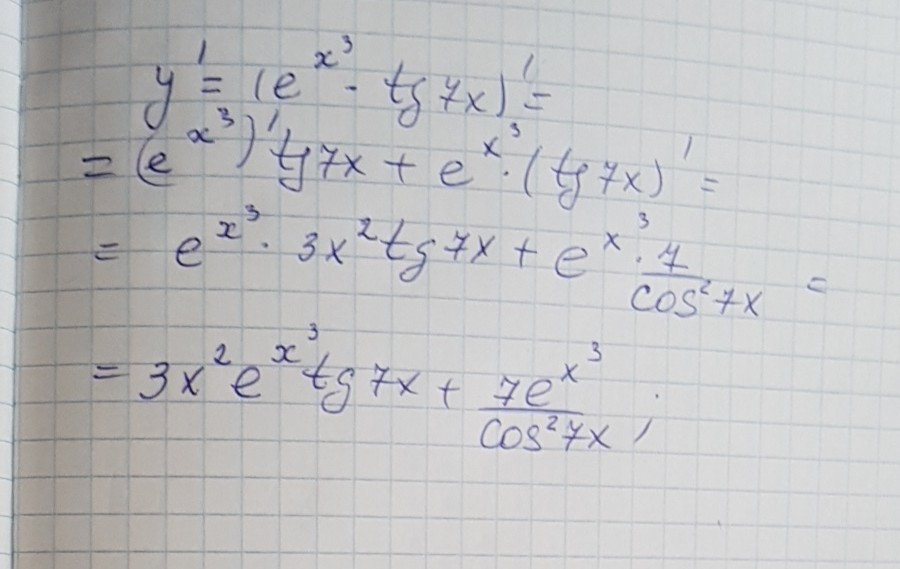 y' = (e^{x^3} · tg 7x)' =
= (e^{x^3})' tg 7x + e^{x^3} · (tg 7x)' =
= e^{x^3} · 3x^2 tg 7x + e^{x^3} · \frac{7}{cos^2 7x} =
= 3x^2 e^{x^3} tg 7x + \frac{7e^{x^3}}{cos^2 7x};